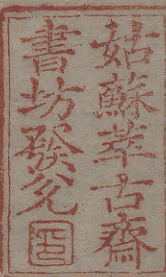 姑蘇萃古齋
書坊發兌